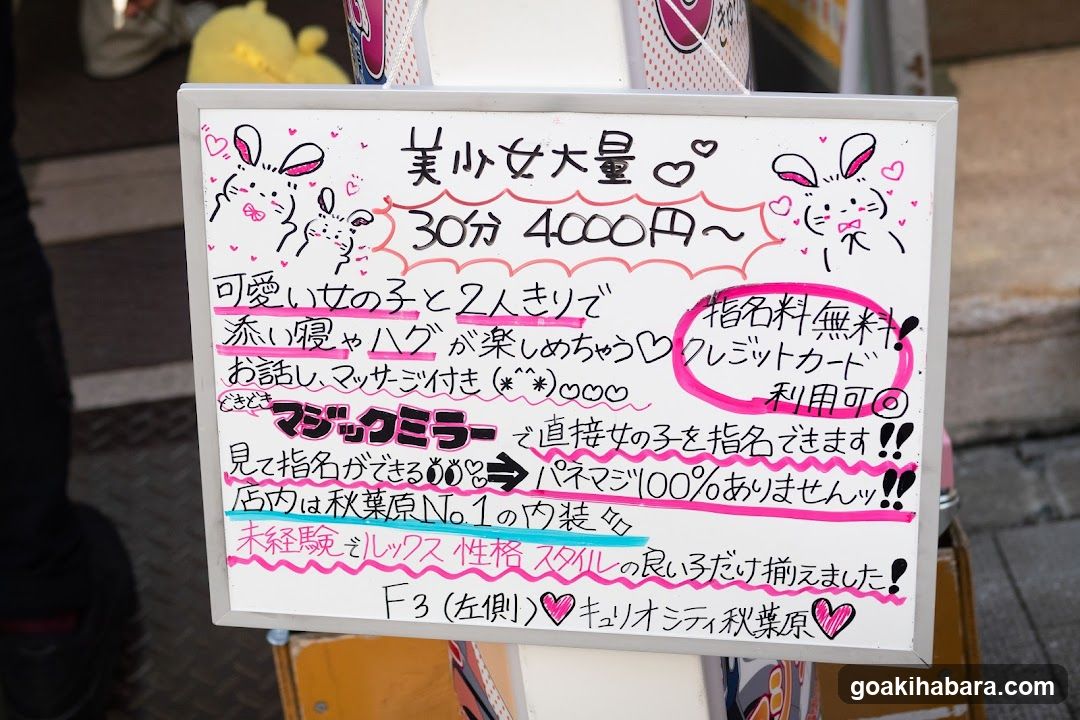 美少女大量♡♡
30分 4000円～
可愛い女の子と2人きりで
添い寝やハグが楽しめちゃう♡
お話し、マッサージ付き(*^^*)○○○
指名料無料!
クレジットカード
利用可◎
どきどき マジックミラーで直接女の子を指名できます!!
見て指名ができる♡⇒パネマジ100%ありませんッ!!
店内は秋葉原No.1の内装
未経験でルックス 性格 スタイルの良い子だけ揃えました!
F3(左側)♥キュリオシティ秋葉原♥
goakihabara.com